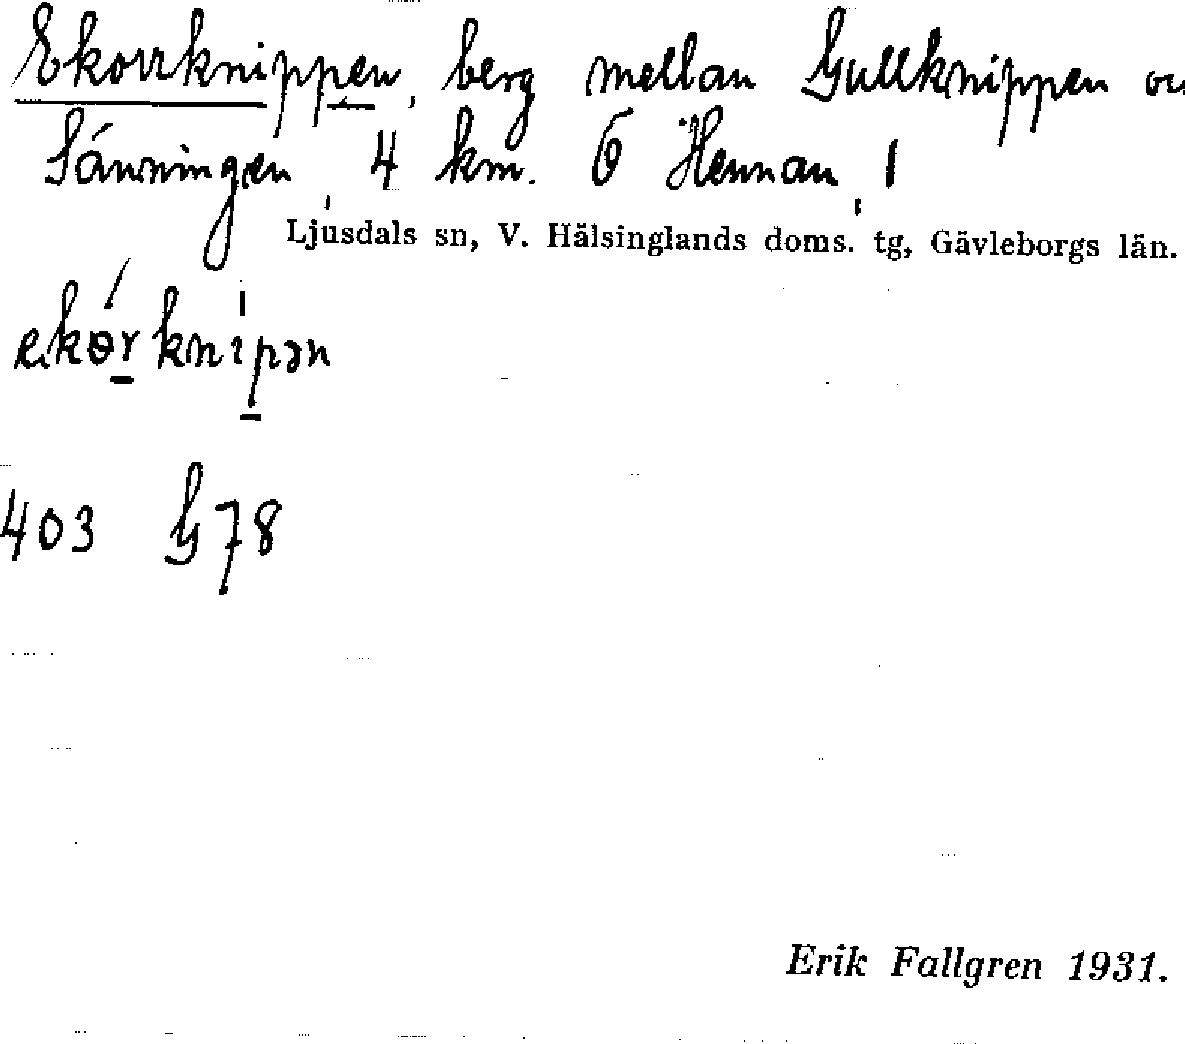 Ekorrknippen, berg mellan Gullknippen
Sånningen, 4 km. Ö Hennan,
Ljusdals sn, V. Hälsinglands doms. tg, Gävleborgs län.
403 G78
Erik Fallgren 1931.